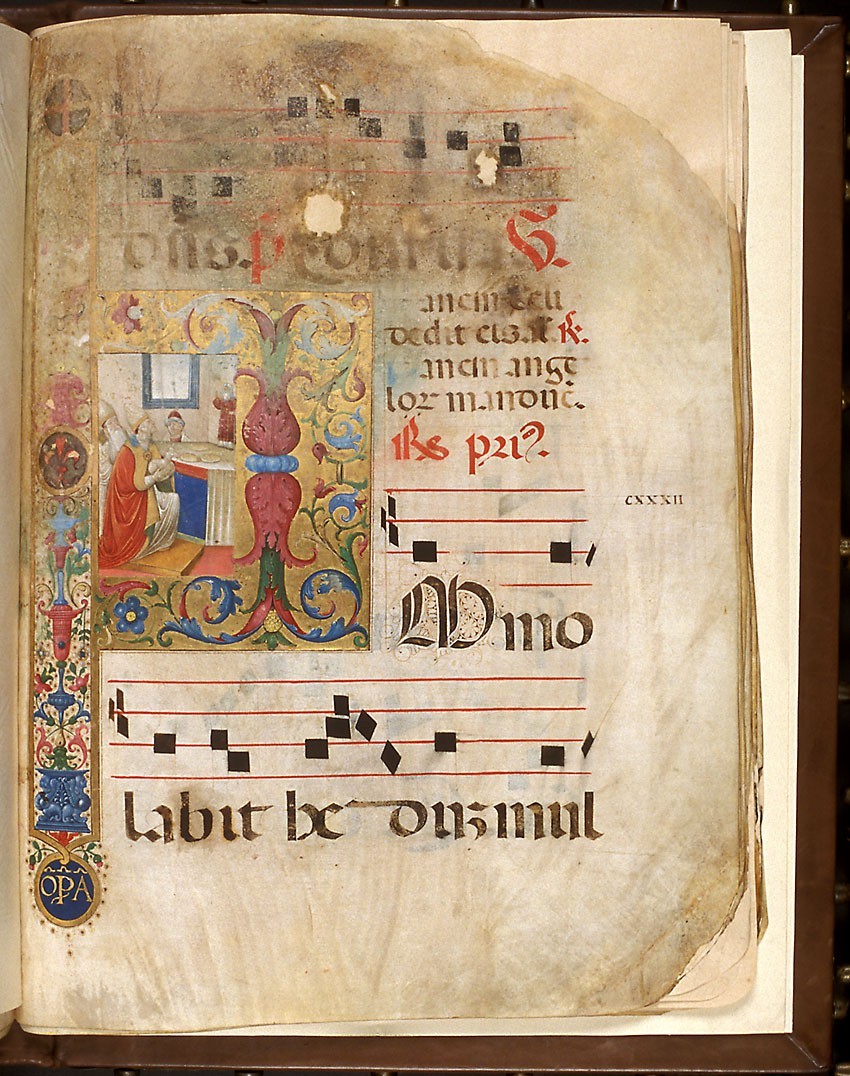 dñs. V.
anem celi
dedit eis. al. ℟.
anem ange
lor manduc̄.
R̄s pri.
CXXXII
I Mmo
labit he duz mul
OPA